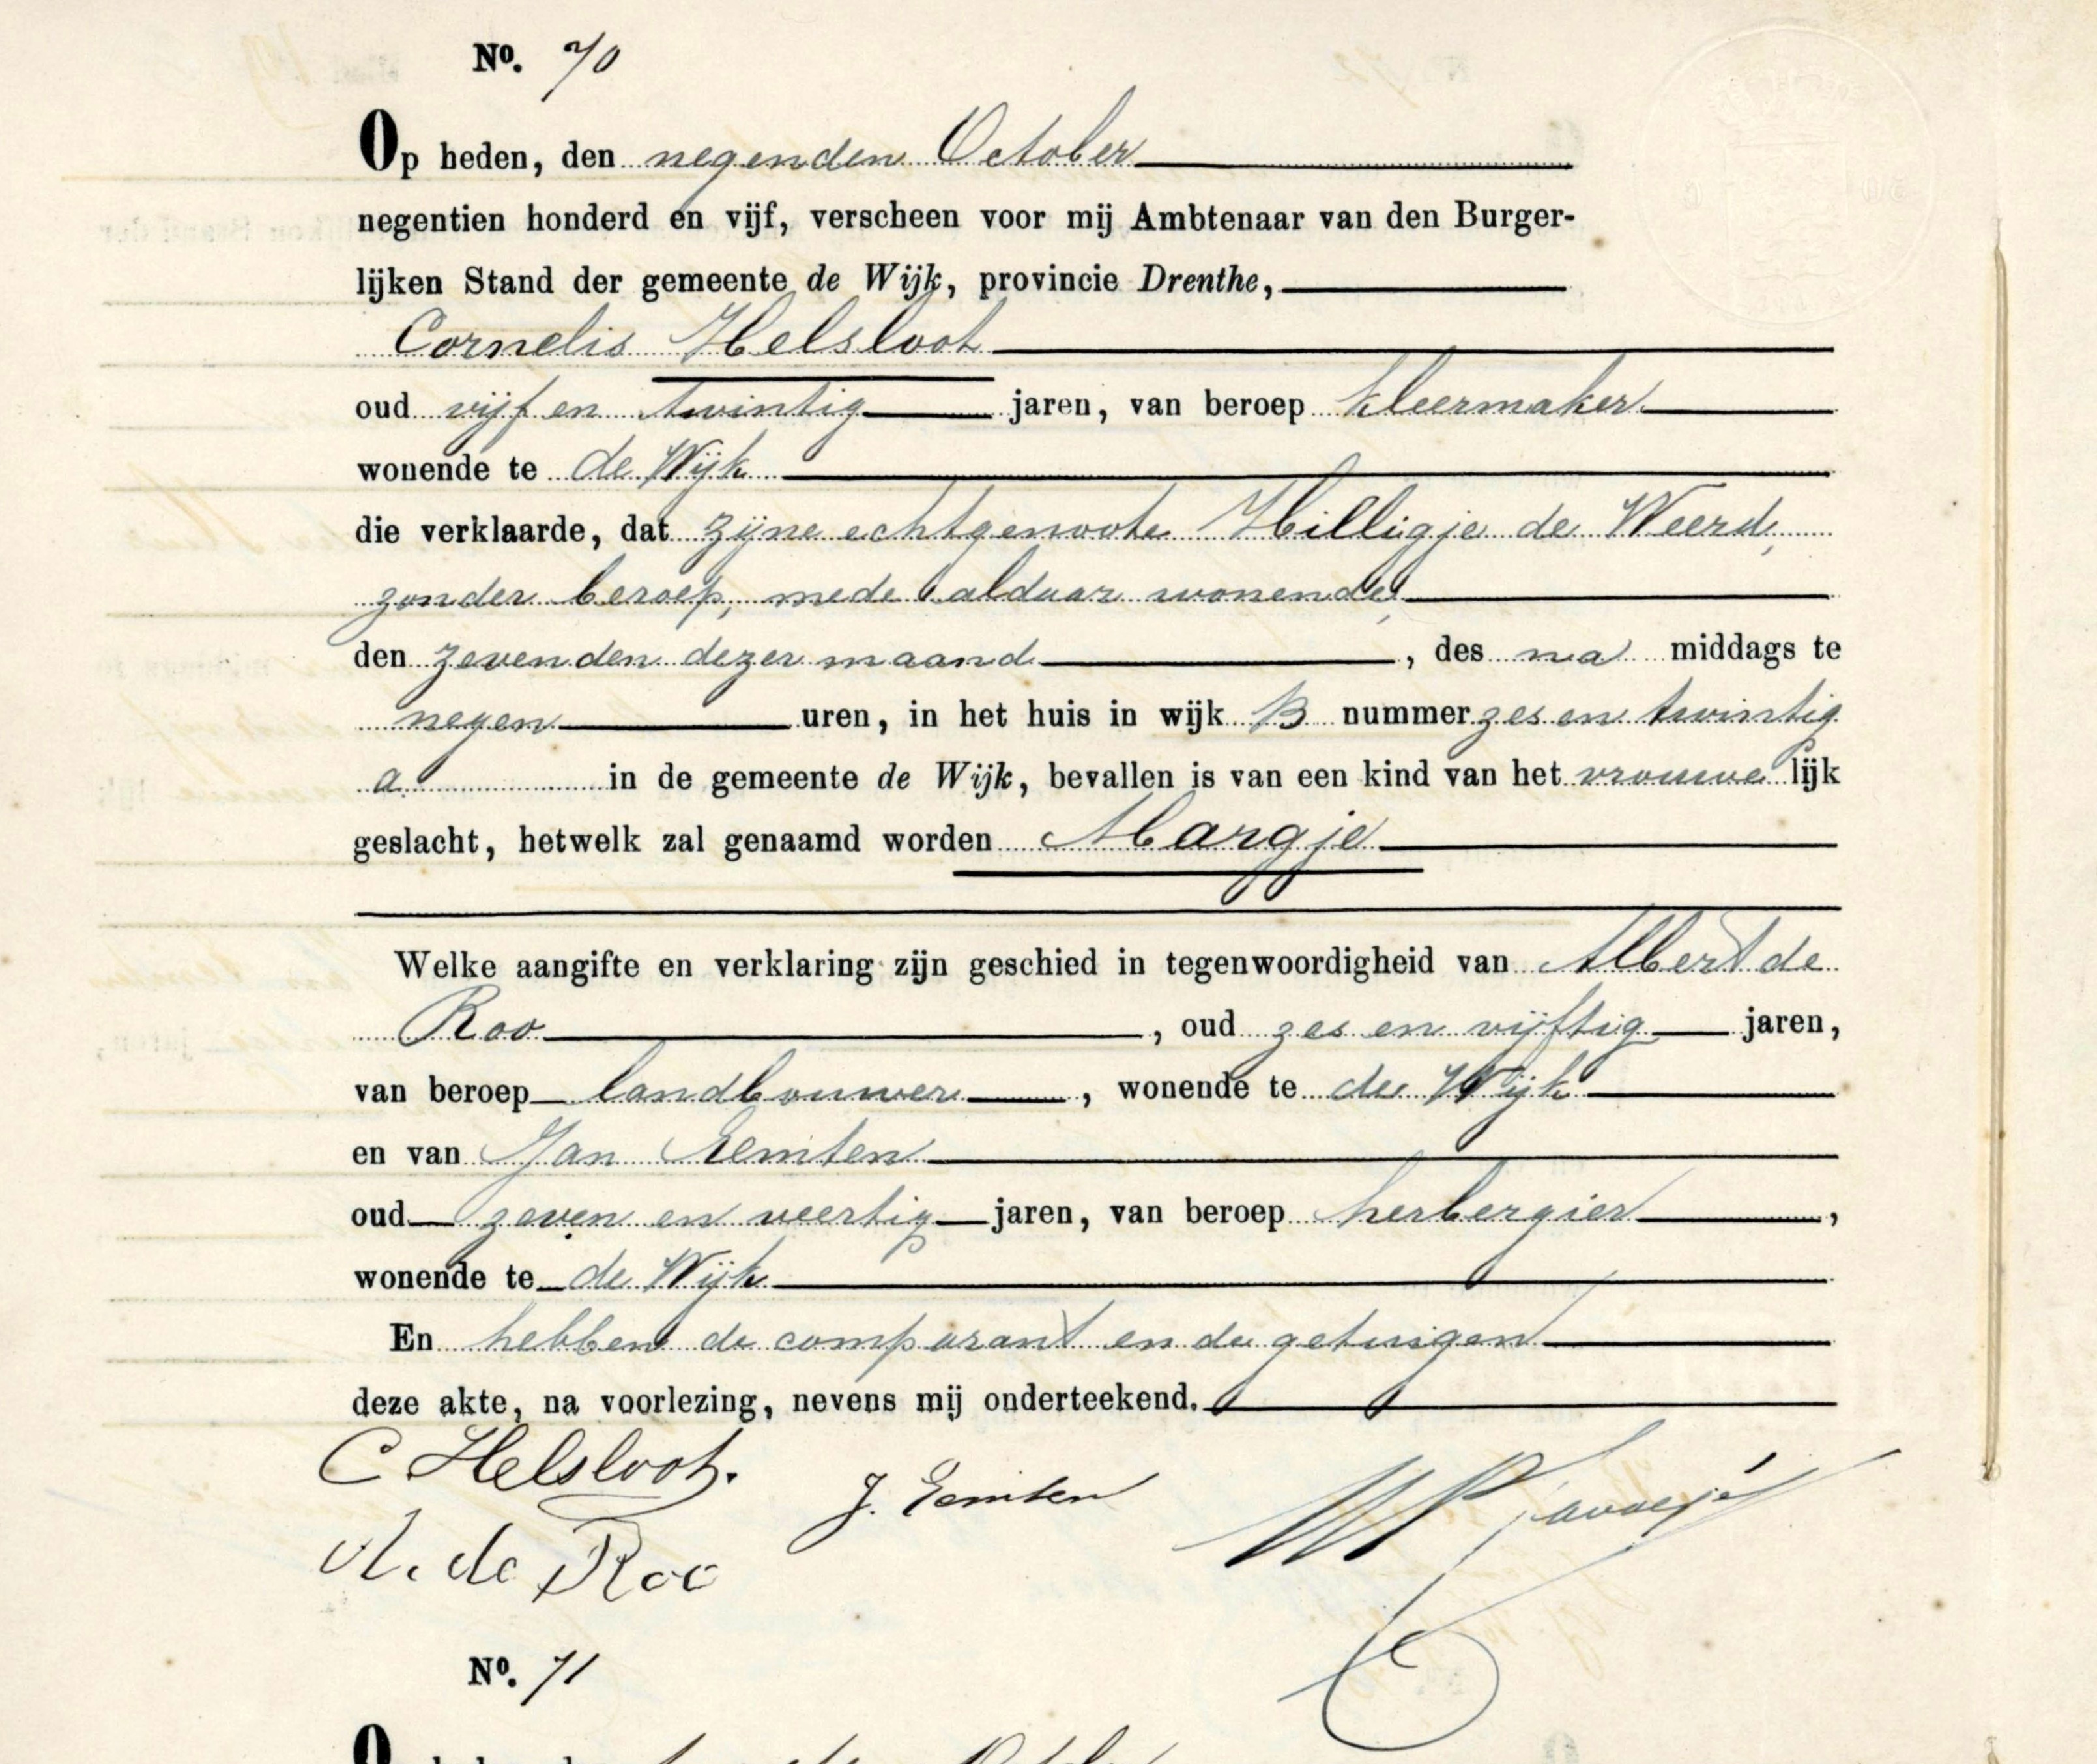 No. 70
Op heden, den negenden October
negentien honderd en vijf, verscheen voor mij Ambtenaar van den Burger-
lijken Stand der gemeente de Wijk, provincie Drenthe,
Cornelis Helsloot
oud vijf en twintig jaren, van beroep kleermaker
wonende te de Wijk
die verklaarde, dat zijne echtgenoote Hilligje de Weerd,
zonder beroep, mede aldaar wonende,
den zevenden dezer maand, des na middags te
negen uren, in het huis in wijk B nummer zes en twintig
a in de gemeente de Wijk, bevallen is van een kind van het vrouwe lijk
geslacht, hetwelk zal genaamd worden Margje
Welke aangifte en verklaring zijn geschied in tegenwoordigheid van Albert de
Roo, oud zes en vijftig jaren,
van beroep landbouwer, wonende te de Wijk
en van Jan Eemten
oud zeven en veertig jaren, van beroep herbergier,
wonende te de Wijk
En hebben de comparant en de getuigen
deze akte, na voorlezing, nevens mij onderteekend.
C Helsloot.
J. Eemten
A. de Roo
No. 71